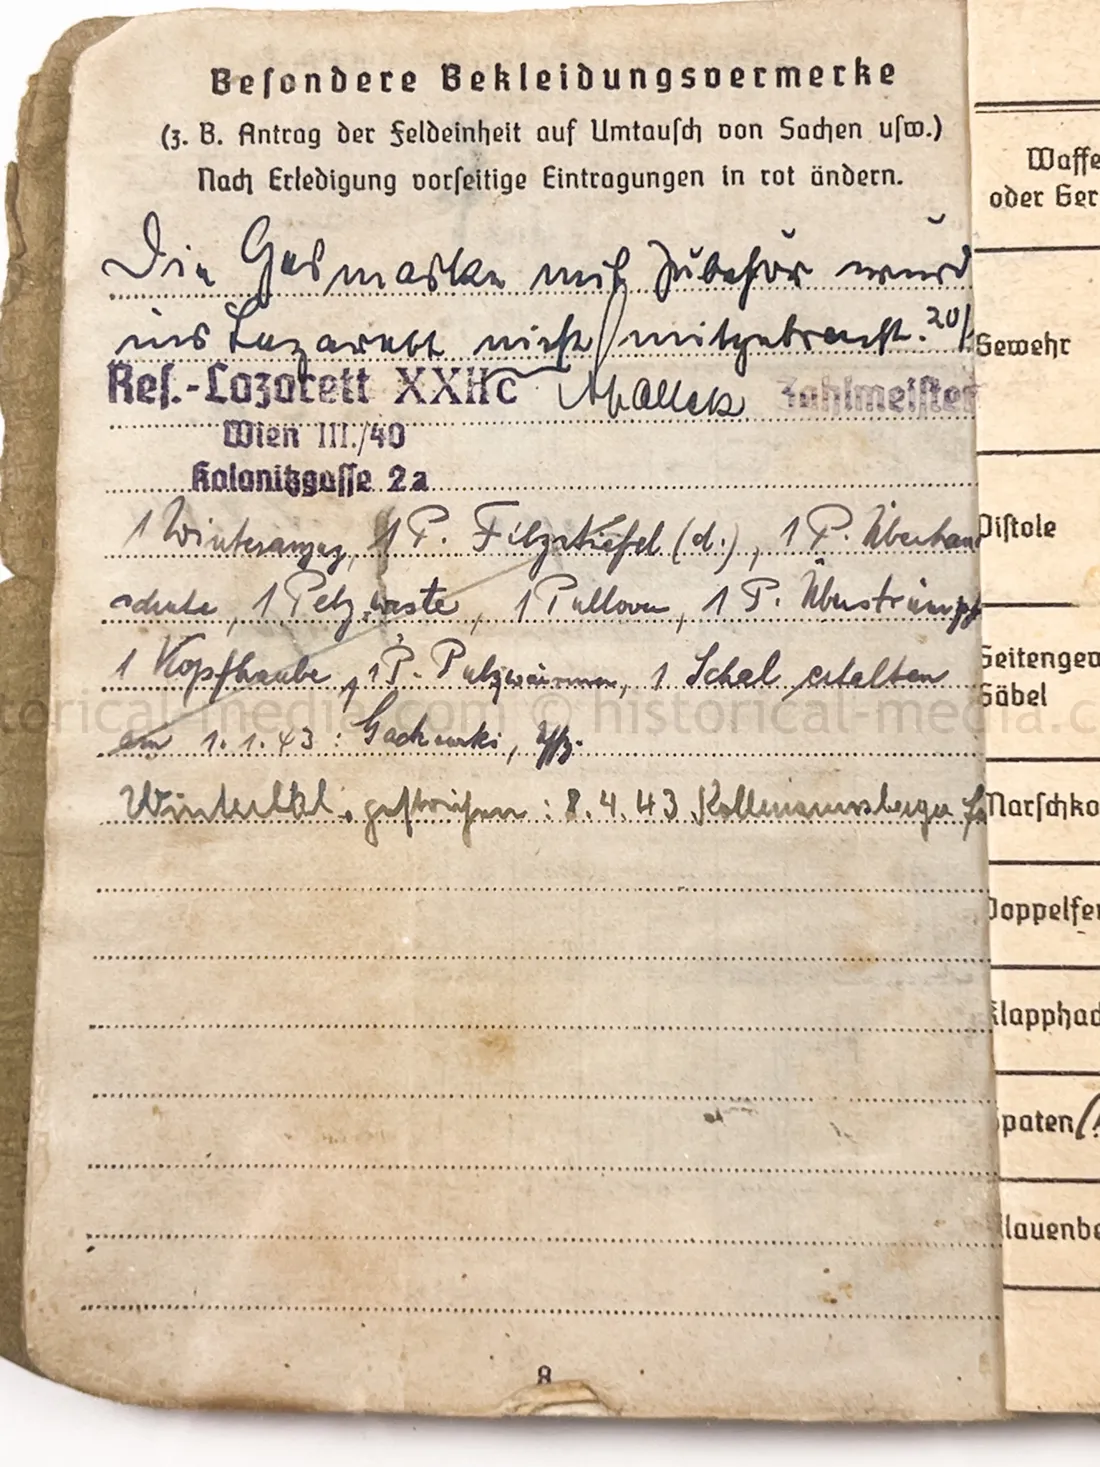 Besondere Bekleidungsvermerke
(z. B. Antrag der Feldeinheit auf Umtausch von Sachen usw.)
Nach Erledigung vorseitige Eintragungen in rot ändern.
Die Gasmaske mit Zubehör wurd
ins Lazarett nicht mitgebracht. 20/
Res.-Lazarett XXIIc Zahlmeister
Wien III./40
Kolonitzgasse 2a
1 Winteranzug, 1 P. Filzstiefel (d.), 1 P. Überhan
schuhe, 1 Pelzweste, 1 Pullover, 1 P. Überstrümpf
1 Kopfhaube, 1 P. Pulswärmer, 1 Schal erhalten
am 1.1.43:
Winterbkl. gestrichen: 8.4.43
8
Waffe
oder Ger
Gewehr
Pistole
Seitengew
Säbel
Marschko
Doppelfer
Klapphac
Spaten
Klauenbe
historical-media.com © historical-media.c